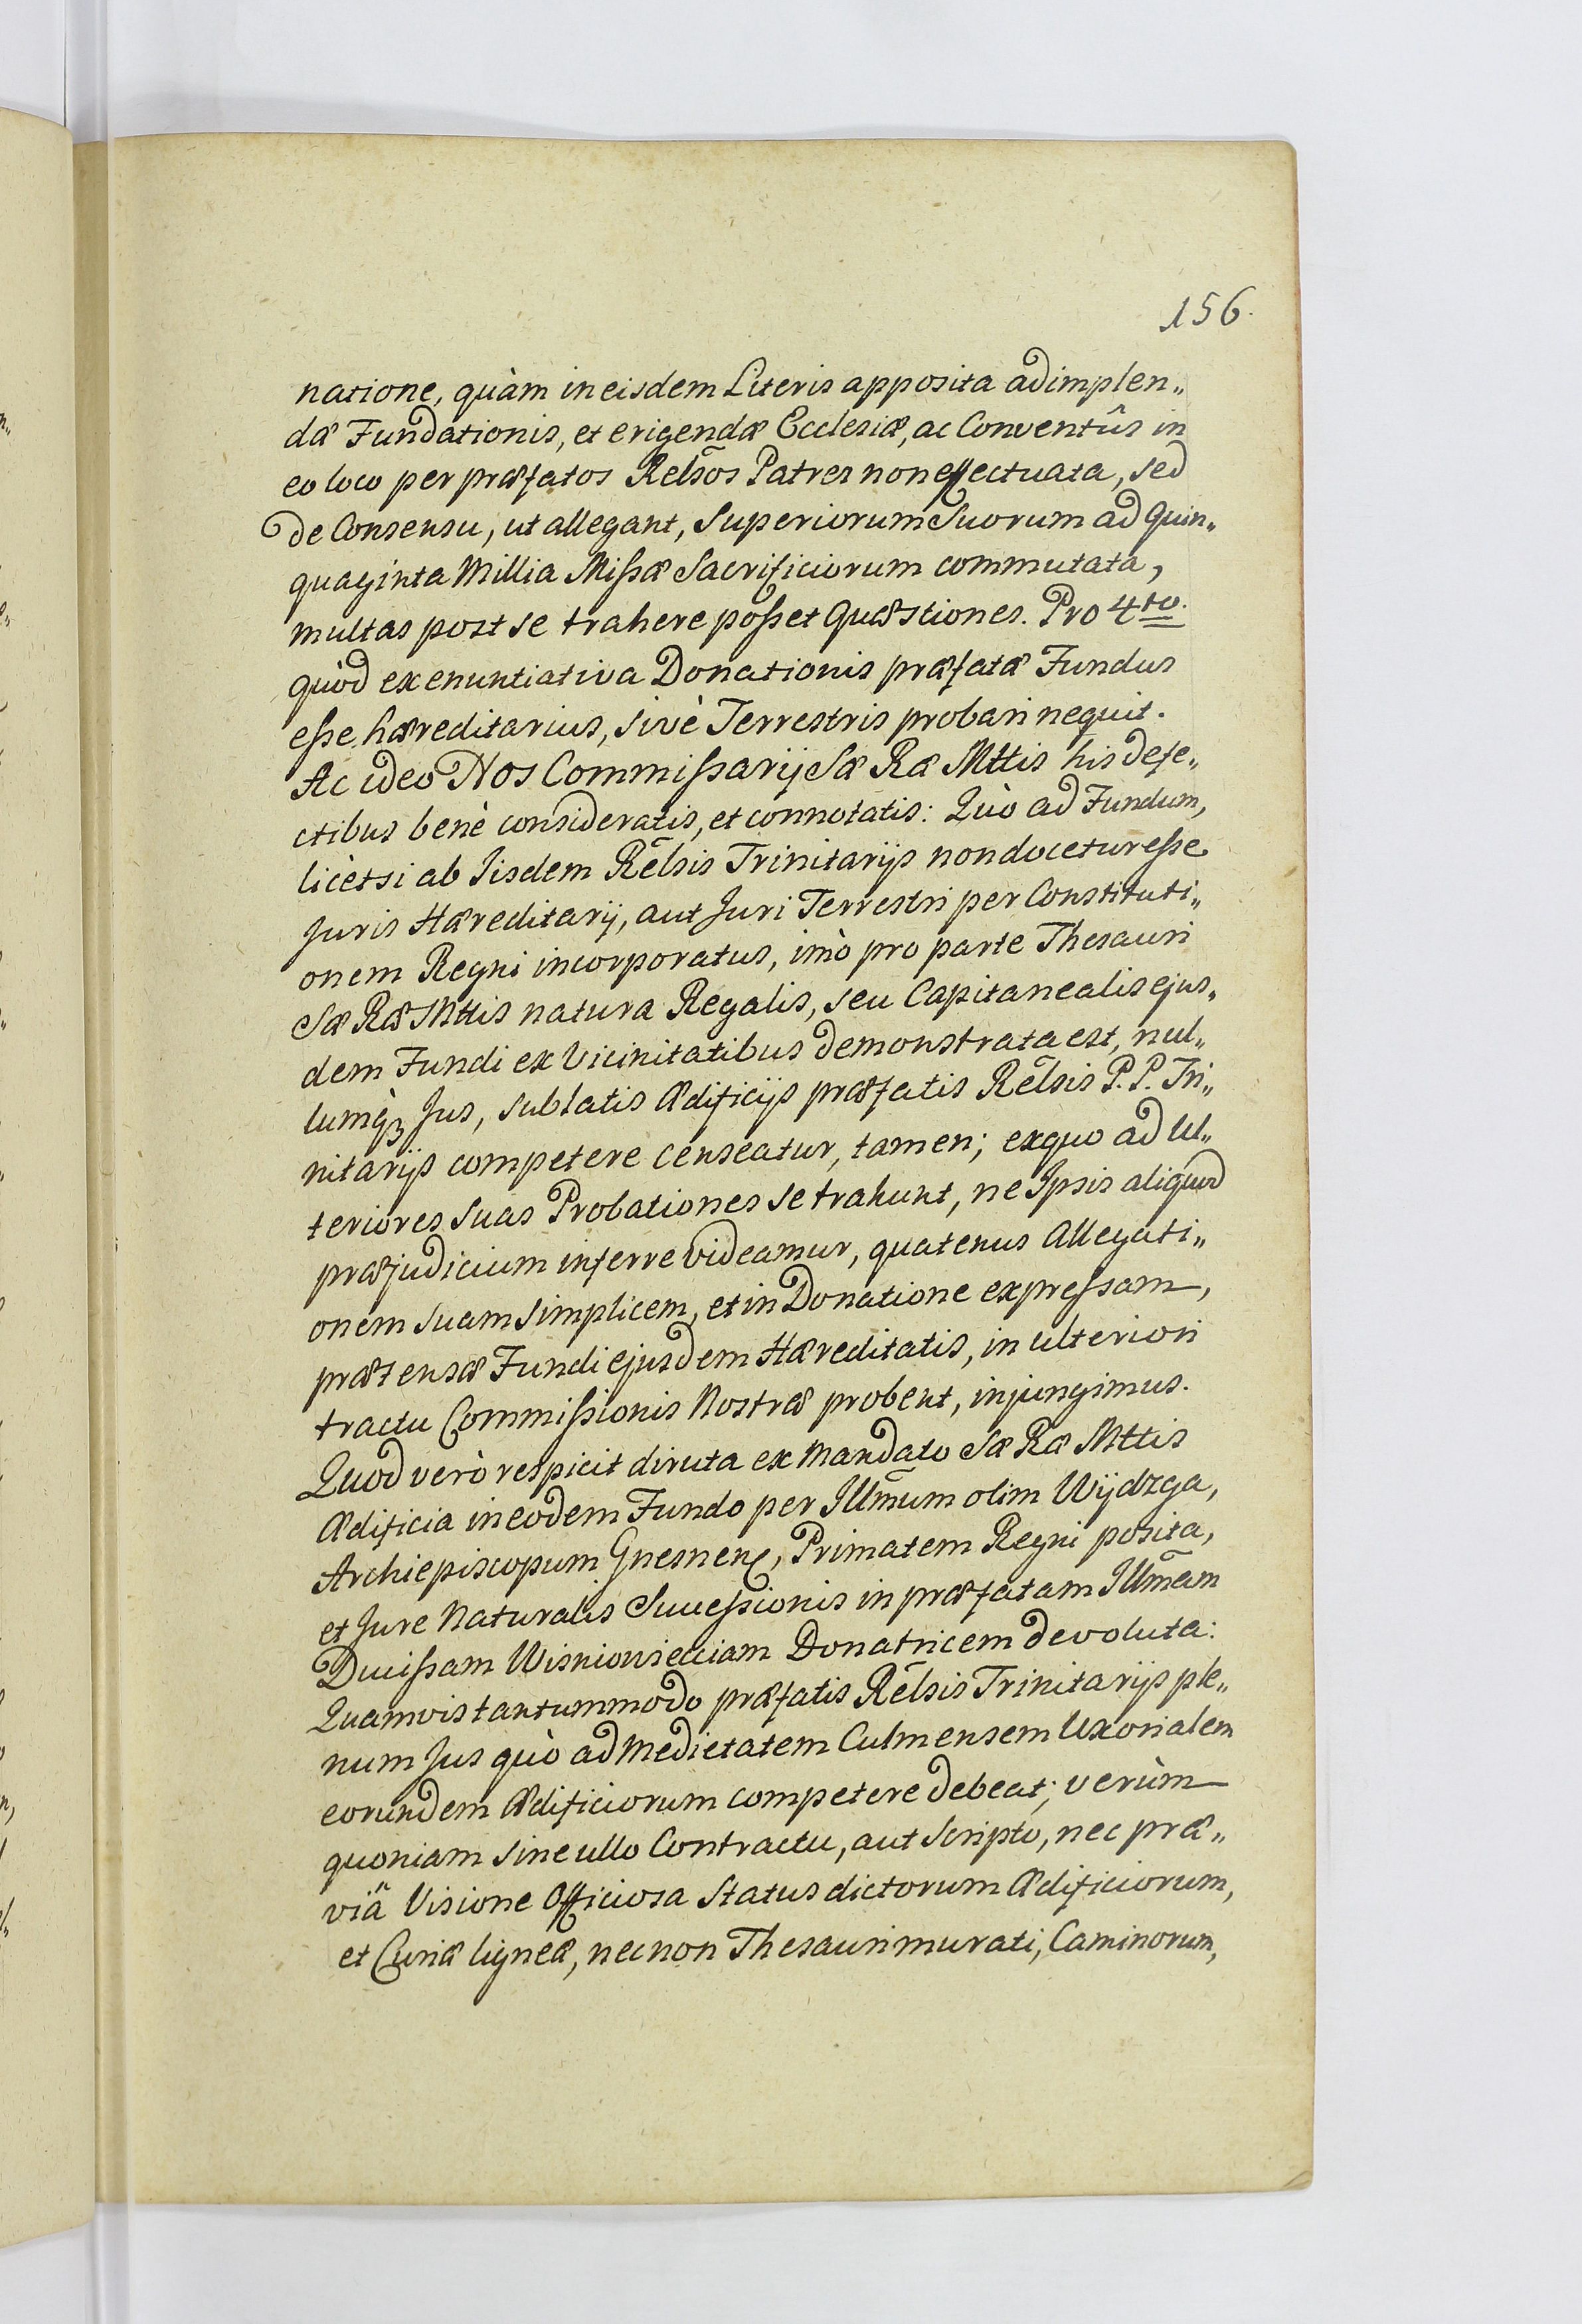 156.
natione, quàm in eisdem Literis apposita adimplen„
dæ Fundationis, et erigendæ Ecclesiæ, ac Conventûs in
eo loco per præfatos Rel̃sos Patres non effectuata, sed
de Consensu, ut allegant, Superiorum Suorum ad Quin„
quaginta Millia Missæ Sacrificiorum commutata,
multas post se trahere posset Quæstiones. Pro 4to.
quòd ex enuntiativa Donationis præfatæ Fundus
esse hæreditarius, sivè Terrestris probari nequit.
Ac ideo Nos Commissarij Sæ Ræ Mttis his defe„
ctibus benè consideratis, et connotatis: Quò ad Fundum,
licètsi ab Iisdem Rel̃sis Trinitarijs non docetur esse
Juris Hæreditarij, aut Juri Terrestri per Constituti„
onem Regni incorporatus, imò pro parte Thesauri
Sæ Ræ Mttis natura Regalis, seu Capitanealis ejus„
dem Fundi ex Vicinitatibus demonstrata est, nul„
lumq̀ꝫ Jus, sublatis Ædificijs præfatis Rel̃sis P. P. Tri„
nitarijs competere censeatur, tamen; exquo ad Ul„
teriores suas Probationes se trahunt, ne Ipsis aliquod
præjudicium inferre videamur, quatenus Allegati„
onem suam simplicem, et in Donatione expressam,
prætensæ Fundi ejusdem Hæreditatis, in ulteriori
tractu Commissionis Nostræ probent, injungimus.
Quod verò respicit diruta ex Mandato Sæ Ræ Mttis
Ædificia in eodem Fundo per Illm̃um olim Wijdzga,
Archiepiscopum Gnesnen, Primatem Regni posita,
et Jure Naturalis Successionis in præfatam Illm̃am
Ducissam Wisniowiecciam Donatricem devoluta:
Quamvis tantummodo præfatis Rel̃sis Trinitarijs ple„
num Jus quò ad Medietatem Culmensem Uxorialem
eorundem Ædificiorum competere debeat; verùm
quoniam sine ullo Contractu, aut Scripto, nec præ„
viâ Visione Officiosa Status dictorum Ædificiorum,
et Curiæ ligneæ, necnon Thesauri murati, Caminorum,